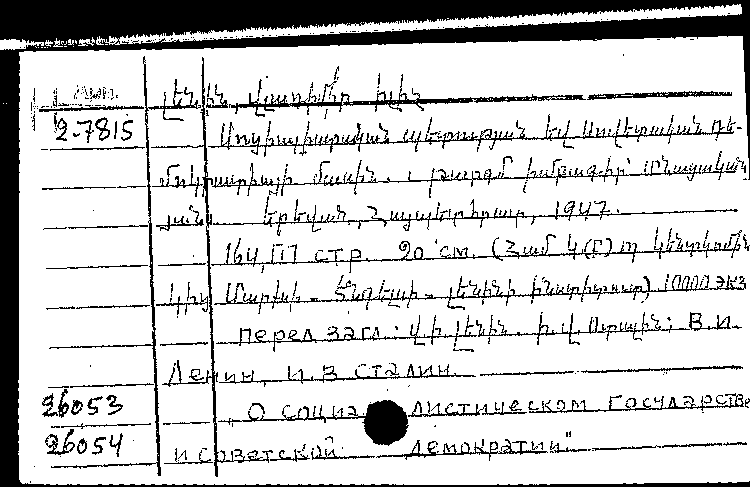 Լենին, Վլադիմիր Իլիչ
2-7815
Սոցիալիստական պետության եվ Սովետական դե-
մոկրատիայի մասին. թարգմ խմբագիր՝
Երեվան, Հայպետհրատ, 1947.
164, [1] стр. 20 см. (Համ Կ(բ)Պ Կենտկոմին
կից Մարքսի - Էնգելսի - Լենինի ինստիտուտ) 10000 экз
перед загл.: Վ.Ի. Լենին. Ի.Վ. Ստալին: В.И.
Ленин, И.В Сталин.
26053 „О социалистическом государстве
26054 и советской демократии"